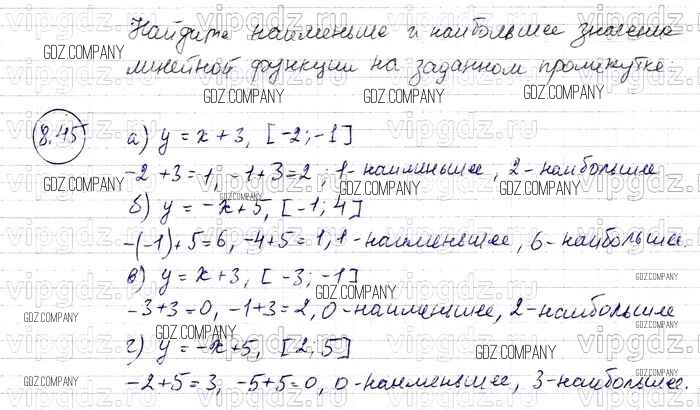 Найдите наименьше и наибольшее значение
линейной функции на заданном промежутке:
8.45 а) y = x + 3, [-2; -1]
-2 + 3 = 1, -1 + 3 = 2; 1 - наименьшее, 2 - наибольшее
б) y = -x + 5, [-1; 4]
-(-1) + 5 = 6, -4 + 5 = 1, 1 - наименьшее, 6 - наибольшее.
в) y = x + 3, [-3; -1]
-3 + 3 = 0, -1 + 3 = 2, 0 - наименшее, 2 - наибольшее
г) y = -x + 5, [2; 5]
-2 + 5 = 3, -5 + 5 = 0, 0 - наименьшее, 3 - наибольшее.